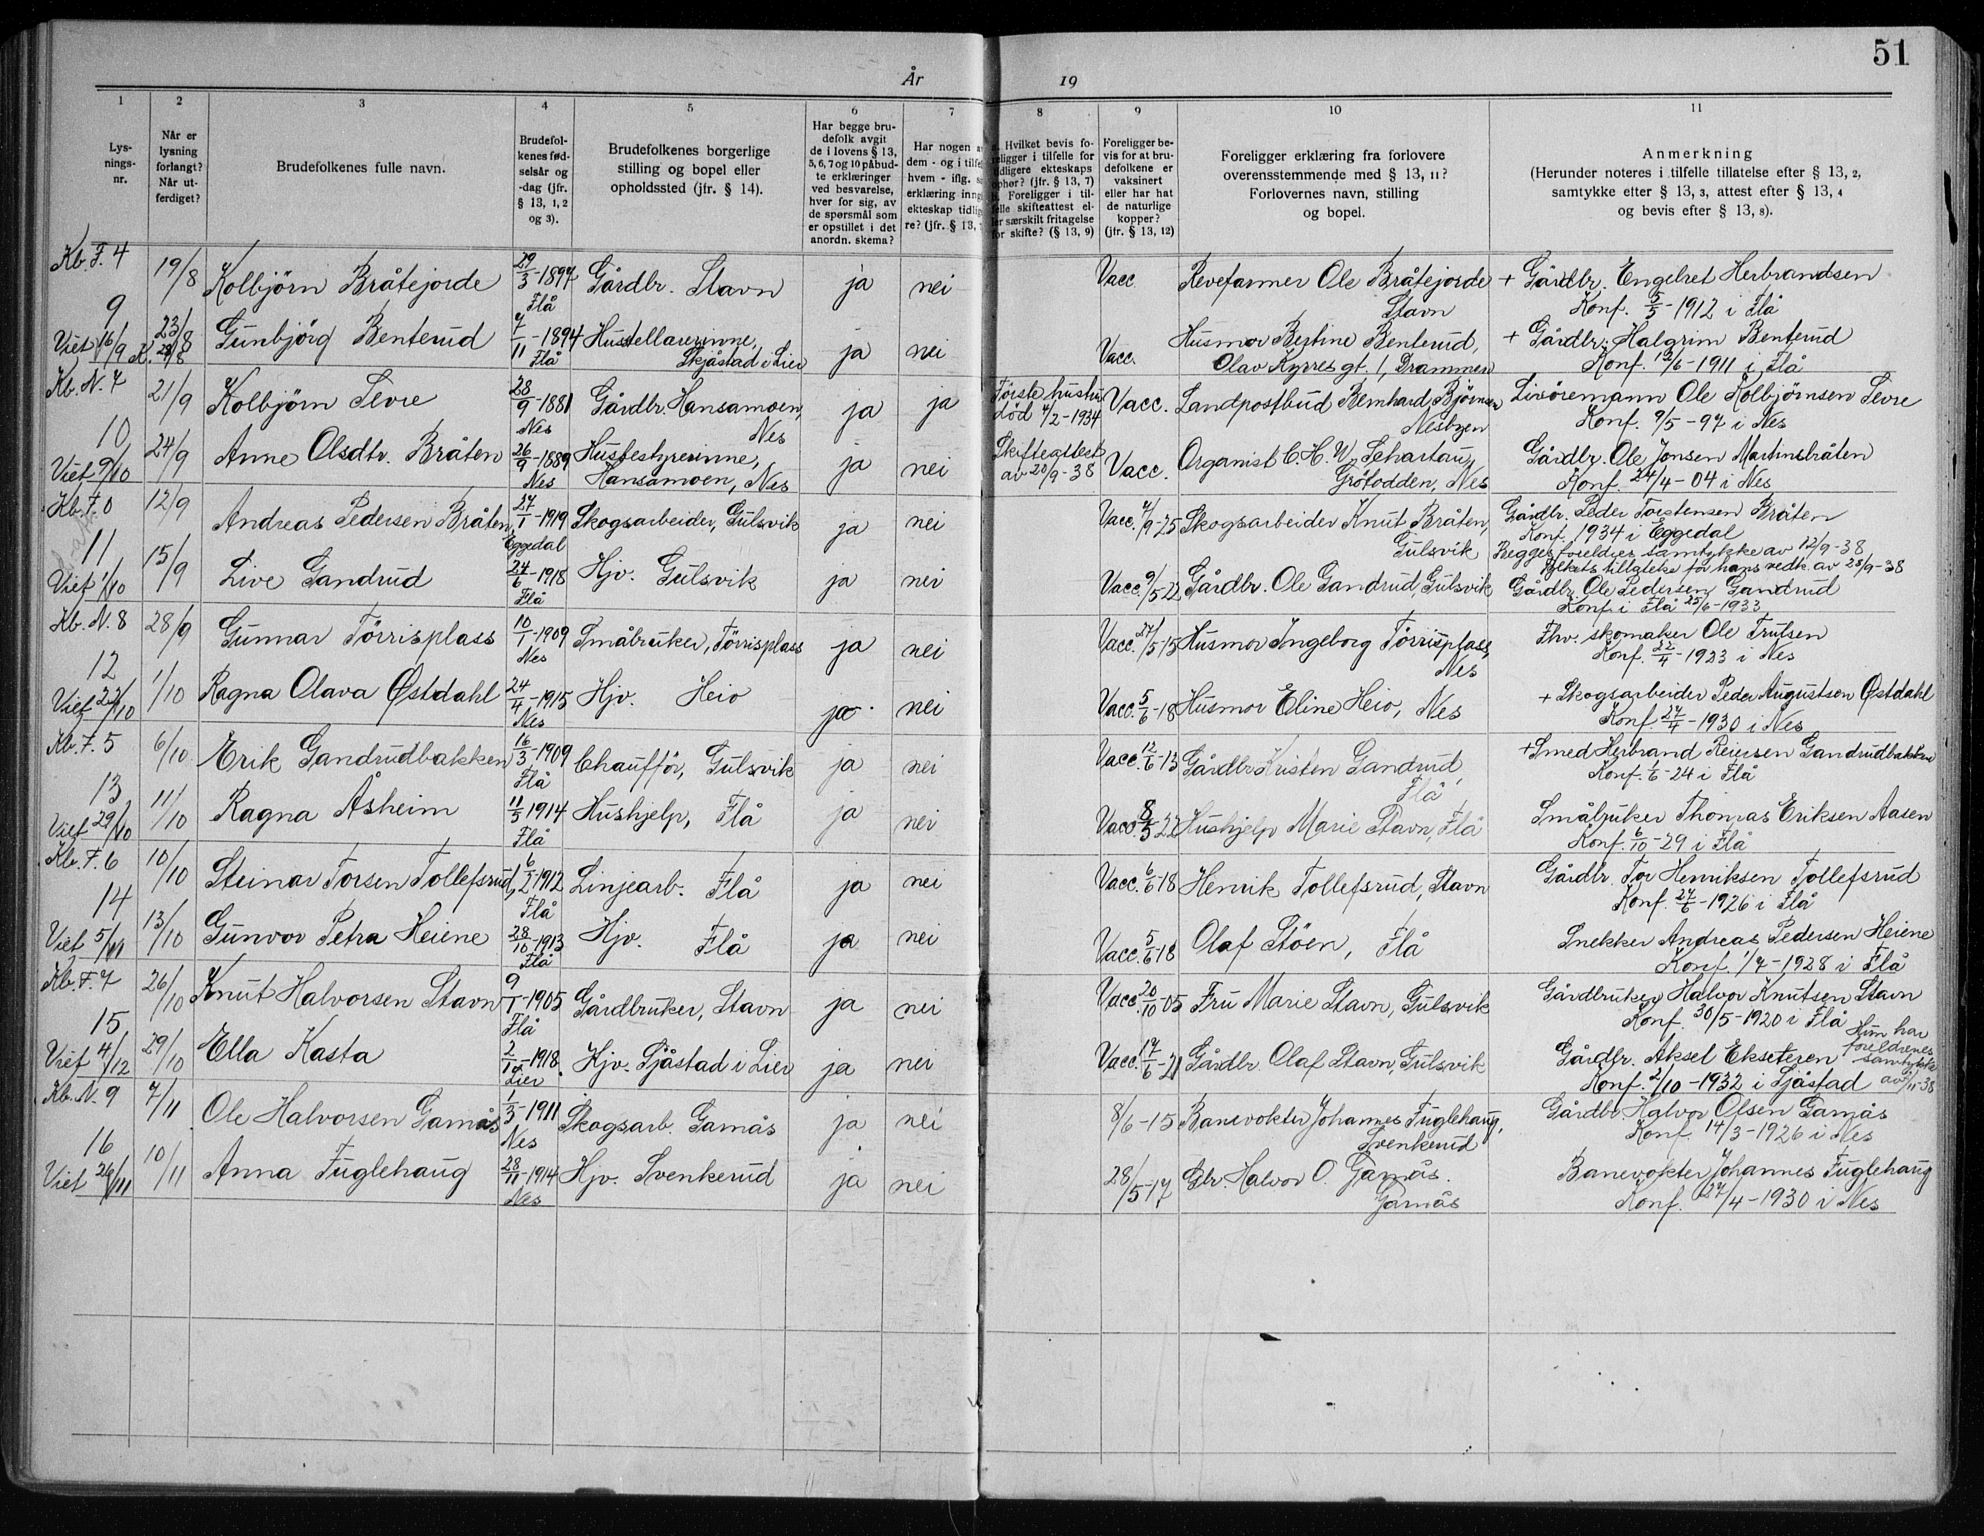 51
År 19
1 2 3 4 5 6 7 8 9 10 11
Lys-
nings-
nr.
Når er
lysning
forlangt?
Når ut-
ferdiget?
Brudefolkenes fulle navn.
Brudefol-
kenes fød-
selsår og
-dag (jfr.
§ 13, 1, 2
og 3).
Brudefolkenes borgerlige
stilling og bopel eller
opholdssted (jfr. § 14).
Har begge bru-
defolk avgit
de i lovens § 13,
5, 6, 7 og 10 påbud-
te erklæringer
ved besvarelse,
hver for sig, av
de spørsmål som
er opstillet i det
anordn. skema?
Har nogen
dem - og i tilf
hvem - iflg.
erklæring inng
ekteskap tidlig
re? (jfr. § 13,
Hvilket bevis fo-
religger i tilfelle for
tidligere ekteskaps
ophør? (jfr. § 13, 7)
Foreligger i til-
felle skifteattest el-
ler særskilt fritagelse
for skifte? (§ 13, 9)
Foreligger be-
vis for at bru-
defolkene er
vaksinert
eller har hat
de naturlige
kopper?
(jfr. § 13, 12)
Foreligger erklæring fra forlovere
overensstemmende med § 13, 11?
Forlovernes navn, stilling
og bopel.
Anmerkning
(Herunder noteres i tilfelle tillatelse efter § 13, 2,
samtykke etter § 13, 3, attest efter § 13, 4
og bevis efter § 13, 8).
Kb. F. 4 19/8 Kolbjörn Bråtejorde 29/3-1897 Flå Gårdbr. Stavn ja nei Vacc. Revefarmer Ole Bråtejorde Stavn + Gårdbr. Engebret Herbrandsen
Konf. 5/5-1912 i Flå
9
Viet 16/9 23/8 Gunbjörg Benterud 7/11-1894 Flå Skjåstad i Lier ja nei Vacc. Husmor Bertine Benterud,
Olav Kyrres gt. 1, Drammen + Gårdbr. Halgrim Benterud
Konf. 12/6-1911 i Flå
Kb. N. 7 21/9 Kolbjörn Sevre 28/9-1881 Nes Gårdbr. Hansamoen, Nes ja ja Første hustru
död 4/2-1934 Vacc. Landpostbud Bernhard Björnsen
Nesbyen Ole Kolbjørnsen Sevre
Konf. 9/5-97 i Nes
10
Viet 9/10 24/9 Anne Olsdtr. Bråten 26/9-1889 Nes Husbestyrerinne,
Hansamoen, Nes ja nei Skifteattest
av 20/9-38 Vacc. Organist C. H. W. Schartau,
Gröfodden, Nes Gårdbr. Ole Jonsen Martinsbråten
Konf. 24/4-04 i Nes
Kb. F. 0 12/9 Andreas Pedersen Bråten, 27/1-1919 Eggedal Skogsarbeider, Gulsvik ja nei Vacc. 4/9-25 Skogsarbeider Knut Bråten,
Gulsvik Gårdbr. Peder Torstensen Bråten
Konf. 1934 i Eggedal
Begges foreldres samtykke av 12/9-38
Fylkets tillatelse for hans vedk. av 28/9-38
11
Viet 1/10 15/9 Live Gandrud 24/6-1918 Flå Hjv. Gulsvik ja nei Vacc. 9/5-22 Gårdbr. Ole Gandrud, Gulsvik Gårdbr. Ole Pedersen Gandrud
Konf. i Flå 25/6-1933
Kb. N. 8 28/9 Gunnar Törrisplass 10/1-1909 Nes Småbruker, Törrisplass ja nei Vacc. 27/5-15 Husmor Ingeborg Törrisplass,
Nes Fhv. skomaker Ole Trulsen
Konf. 22/4-1923 i Nes
12
Viet 22/10 1/10 Ragna Olava Østdahl 24/4-1915 Nes Hjv. Heio ja nei Vacc. 5/6-18 Husmor Eline Heio, Nes + Skogsarbeider Peder Augustson Østdahl
Konf. 27/4-1930 i Nes
Kb. F. 5 6/10 Erik Gandrudbakken 16/3-1909 Flå Chaufför, Gulsvik ja nei Vacc. 12/6-13 Gårdbr. Kristen Gandrud,
Flå + Smed Herbrand Reiersen Gandrudbakken
Konf. 1/6-24 i Flå
13
Viet 29/10 11/10 Ragna Åsheim 11/5-1914 Flå Hushjelp, Flå ja nei Vacc. 8/5-22 Hushjelp Marie Stavn, Flå Småbruker Thomas Eriksen Aasen
Konf. 6/10-29 i Flå
Kb. F. 6 10/10 Steinar Torsen Tollefsrud, 6/2-1912 Flå Linjearb. Flå ja nei Vacc. 6/6-18 Henrik Tollefsrud, Stavn Gårdbr. Tor Henriksen Tollefsrud
Konf. 27/6-1926 i Flå
14
Viet 5/11 13/10 Gunvor Petra Heiene 28/10-1913 Flå Hjv. Flå ja nei Vacc. 5/6-18 Olaf Stöen, Flå Snekker Andreas Pedersen Heiene
Konf. 1/7-1928 i Flå
Kb. F. 7 26/10 Knut Halvorsen Stavn 9/1-1905 Flå Gårdbruker, Stavn ja nei Vacc. 20/10-05 Fru Marie Stavn, Gulsvik Gårdbruker Halvor Knutsen Stavn
Konf. 30/5-1920 i Flå
15
Viet 4/12 29/10 Ella Kasta 2/10-1918 Lier Hjv. Sjåstad i Lier ja nei Vacc. 17/6-21 Gårdbr. Olaf Stavn, Gulsvik Gårdbr. Aksel Ekseteren
Konf. 2/10-1932 i Sjåstad
Hun har
foreldrenes
samtykke
Kb. N. 9 7/11 Ole Halvorsen Garnås 1/3-1911 Nes Skogsarb. Garnås ja nei 8/6-15 Banevokter Johannes Fuglehaug,
Svenkerud Gårdbr. Halvor Olsen Garnås
Konf. 14/3-1926 i Nes
16
Viet 26/11 10/11 Anna Fuglehaug 28/11-1914 Nes Hjv. Svenkerud ja nei 28/5-17 Gbr. Halvor O. Garnås.
Garnås Banevokter Johannes Fuglehaug
Konf. 27/4-1930 i Nes